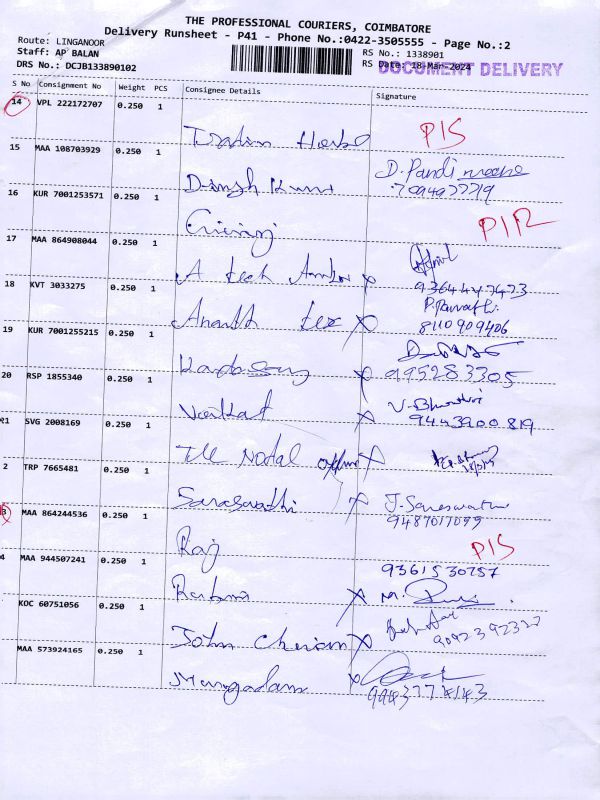 THE PROFESSIONAL COURIERS, COIMBATORE
Delivery Runsheet - P41 - Phone No.:0422-3505555 - Page No.:2
Route: LINGANOOR
RS No.: 1338901
Staff: AP BALAN
RS Date: 18-Mar-2024
DOCUMENT DELIVERY
DRS No.: DCJB133890102
S No Consignment No Weight PCS Consignee Details Signature
14 VPL 222172707 0.250 1 P1S
15 MAA 108703929 0.250 1 D. Pandi
16 KUR 7001253571 0.250 1 P1R
17 MAA 864908044 0.250 1 A tech
9364447473
18 KVT 3033275 0.250 1 Ananth tex
8110909406
19 KUR 7001255215 0.250 1
995283305
20 RSP 1855340 0.250 1 Venkat
9443900819
21 SVG 2008169 0.250 1 The Nodal
2 TRP 7665481 0.250 1 Saraswathi J. Saraswathi
9487017099
3 MAA 864244536 0.250 1 Raj P1S
9361530757
4 MAA 944507241 0.250 1 M.
KOC 60751056 0.250 1 John Cherian
9092392327
MAA 573924165 0.250 1 Mangadam